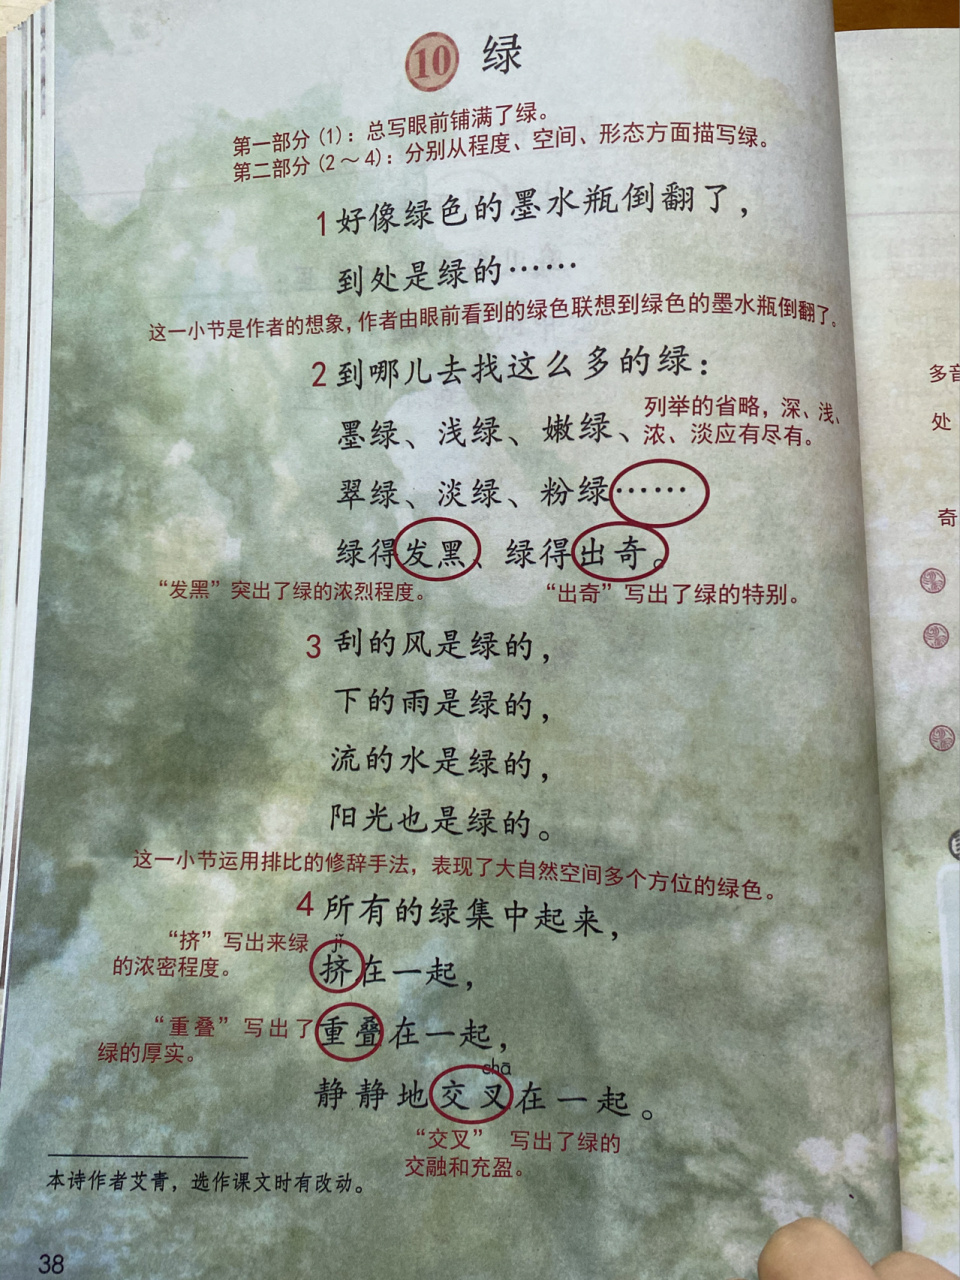 10 绿
第一部分（1）：总写眼前铺满了绿。
第二部分（2～4）：分别从程度、空间、形态方面描写绿。
1 好像绿色的墨水瓶倒翻了，
到处是绿的……
这一小节是作者的想象，作者由眼前看到的绿色联想到绿色的墨水瓶倒翻了。
2 到哪儿去找这么多的绿：
墨绿、浅绿、嫩绿、
列举的省略，深、浅、
浓、淡应有尽有。
翠绿、淡绿、粉绿……
绿得发黑、绿得出奇。
“发黑”突出了绿的浓烈程度。
“出奇”写出了绿的特别。
3 刮的风是绿的，
下的雨是绿的，
流的水是绿的，
阳光也是绿的。
这一小节运用排比的修辞手法，表现了大自然空间多个方位的绿色。
4 所有的绿集中起来，
“挤”写出来绿
的浓密程度。
jǐ
挤在一起，
“重叠”写出了
绿的厚实。
重叠在一起，
chā
静静地交叉在一起。
“交叉” 写出了绿的
交融和充盈。
本诗作者艾青，选作课文时有改动。
38
多音
处
奇